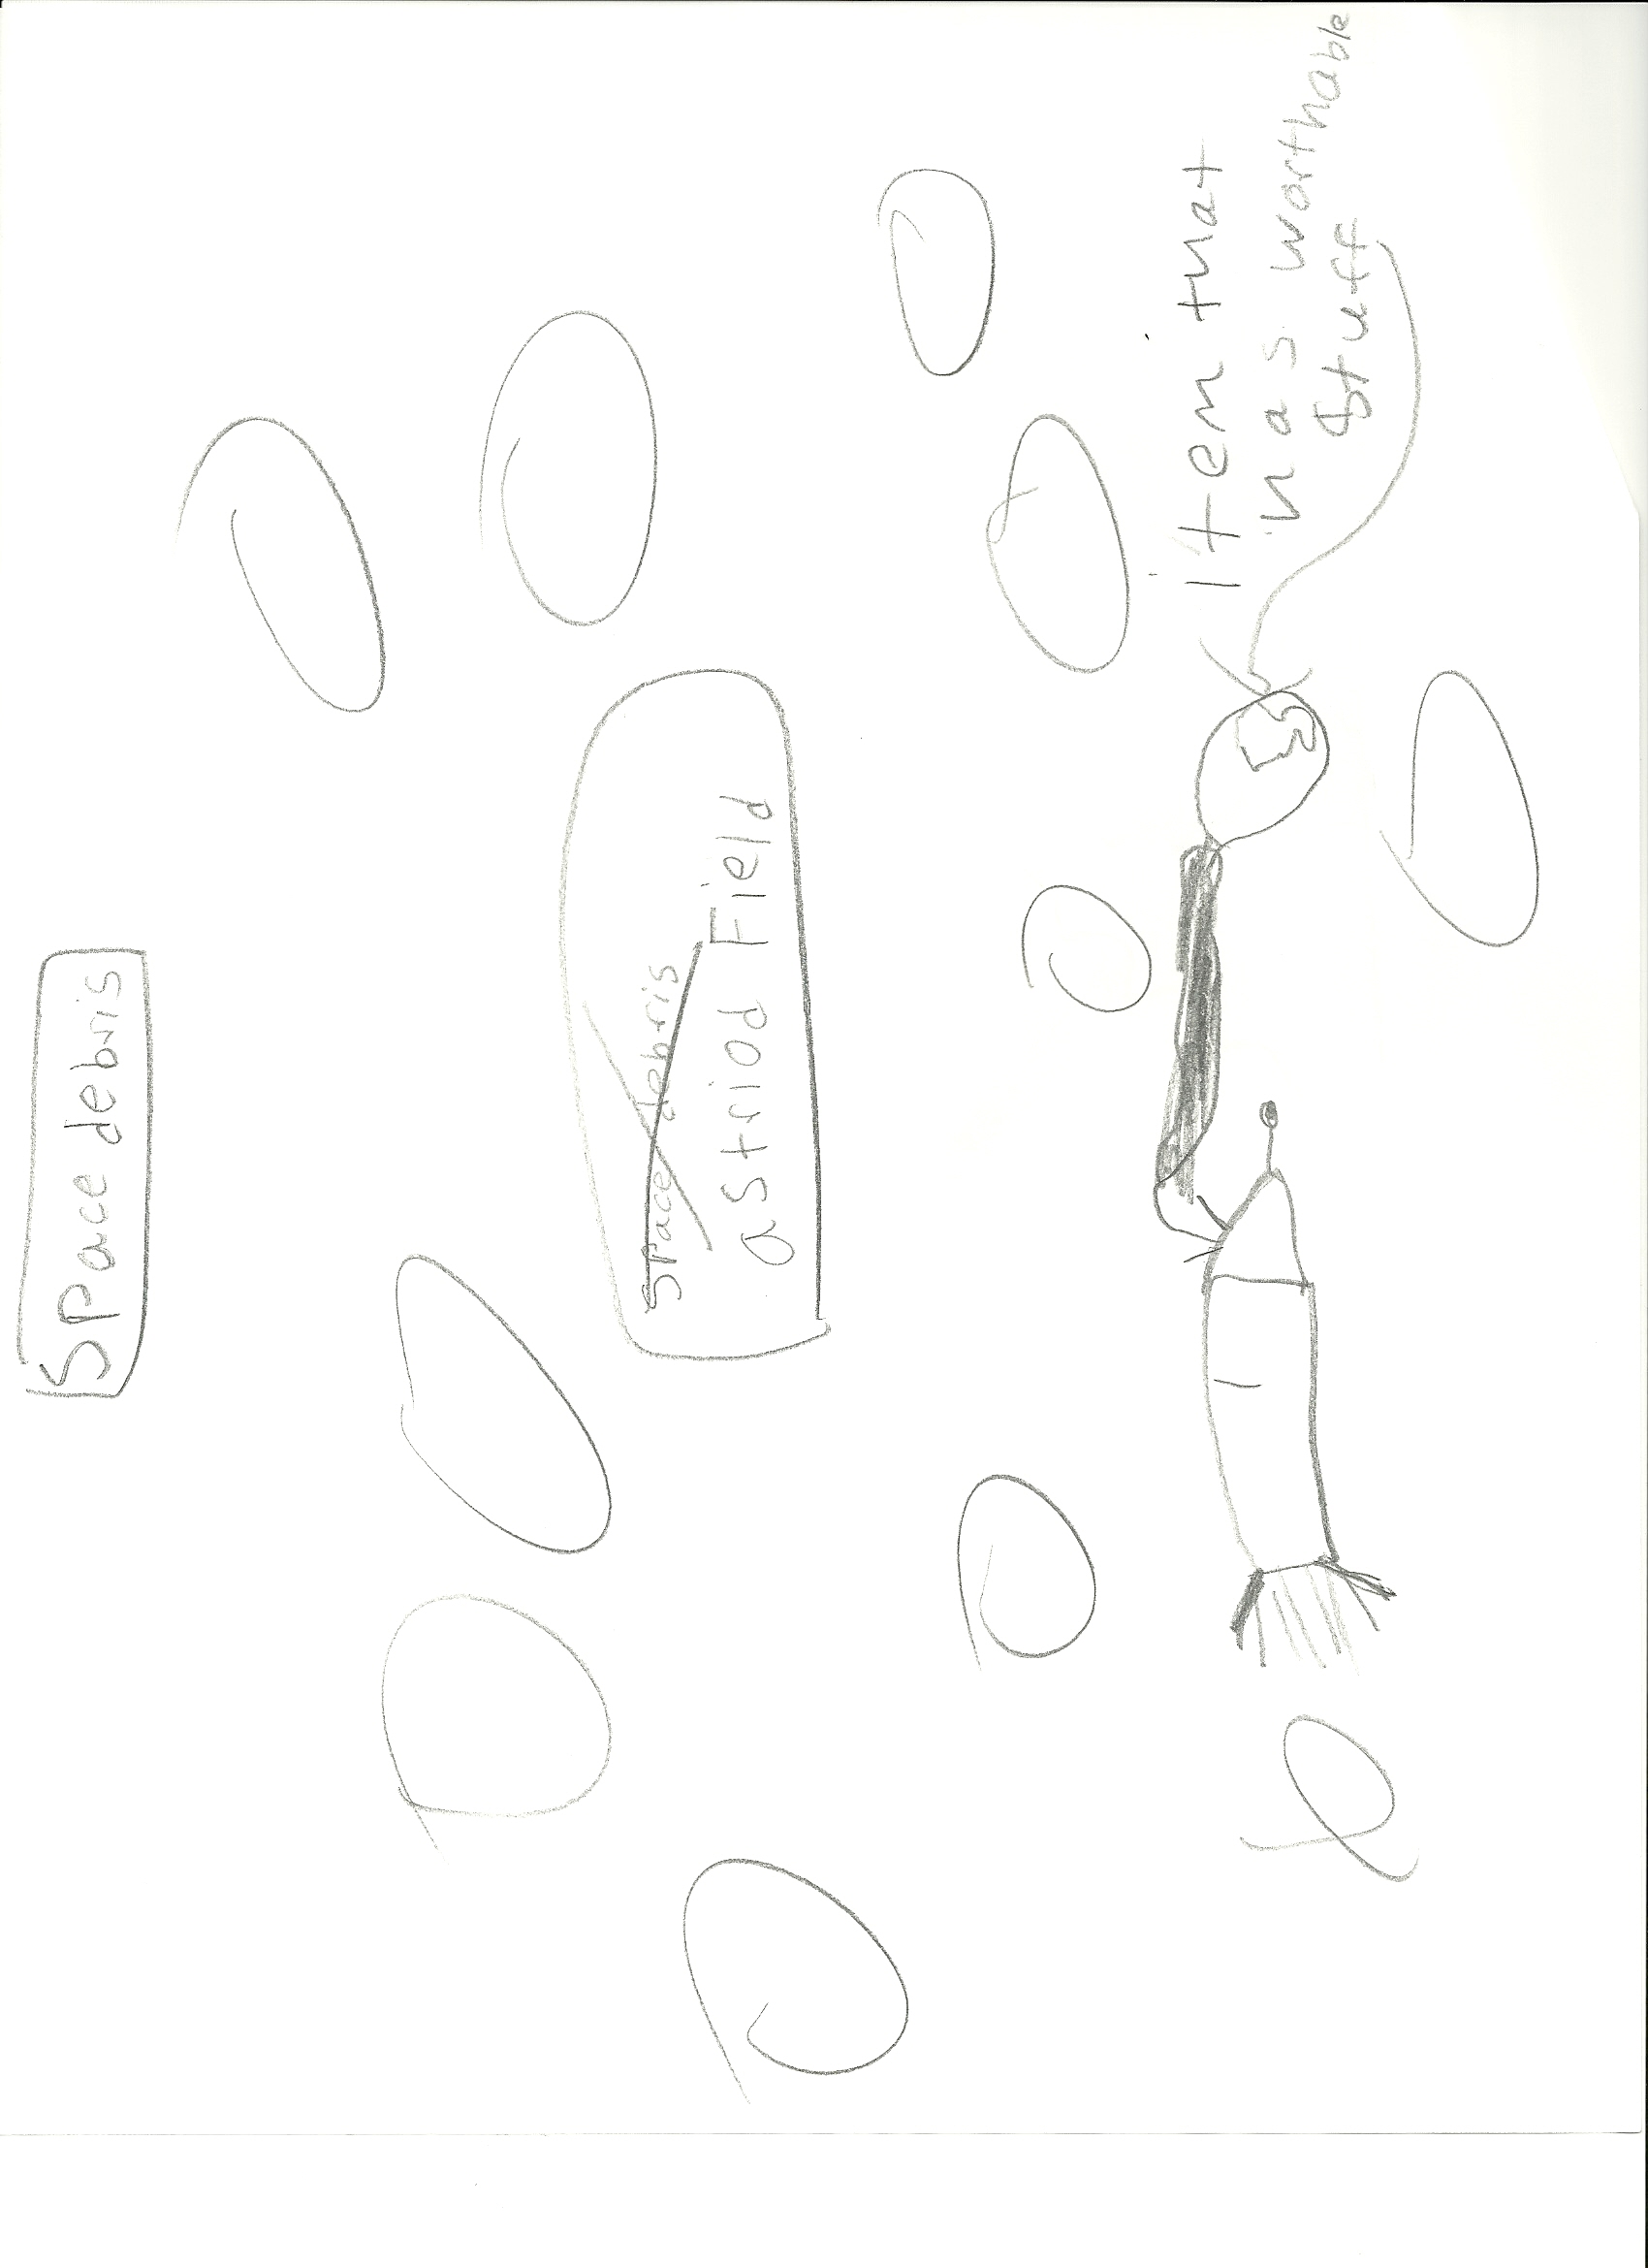 Space debris
Space debris
astriod Field
item that
has worthable
stuff